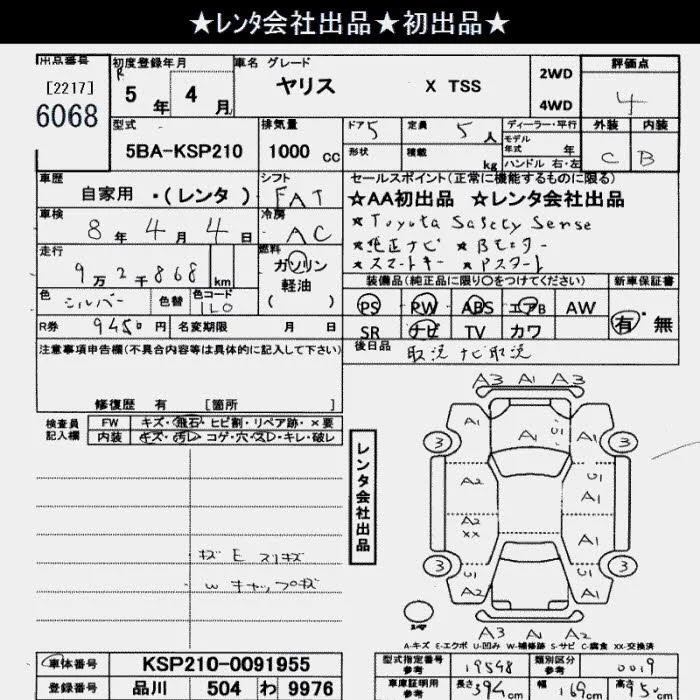 ★レンタ会社出品★初出品★
出品番号
[2217]
6068
初度登録年月
R 5年 4月
車名 グレード
ヤリス X TSS
2WD
4WD
評価点
4
外装 内装
C B
型式
5BA-KSP210
排気量
1000 cc
ドア 5
形状
定員 5人
積載 kg
ディーラー・平行
モデル年式 年
ハンドル 右・左
車歴
自家用 ・(レンタ)
シフト
FAT
車検
8年 4月 4日
冷房
AC
走行
9万2千868 km
燃料
ガソリン
軽油
( )
色
シルバー
色替
色コード
1L0
R券 9450円 名変期限 月 日
セールスポイント(正常に機能するものに限る)
★AA初出品 ★レンタ会社出品
★Toyota Safety Sense
★純正ナビ ★Bモニター
★スマートキー ★Pスタート
装備品(純正品に限り○をつけてください)
新車保証書
PS PW ABS エアB AW
SR ナビ TV カワ
有・無
後日品 取説 ナビ取説
注意事項申告欄(不具合内容等は具体的に記入して下さい)
修復歴 有 [箇所 ]
検査員記入欄
FW キズ・飛石・ヒビ割・リペア跡・×要
内装 キズ・汚レ・コゲ・穴・スレ・キレ・破レ
レンタ会社出品
キズ E スリキズ
W キャップキズ
A3 A1 A3
A1 A1 U1
3 3
A2 U1 A1
A2 XX A1
3 3
A2 A1 A2
A3 A1 A2
A-キズ E-エクボ U-凹み W-補修跡 S-サビ C-腐食 XX-交換済
車体番号 KSP210-0091955
登録番号 品川 504 わ 9976
型式指定番号参考 19548
類別区分参考 0019
車庫証明用参考 長さ 394cm 幅 169cm 高さ 150cm